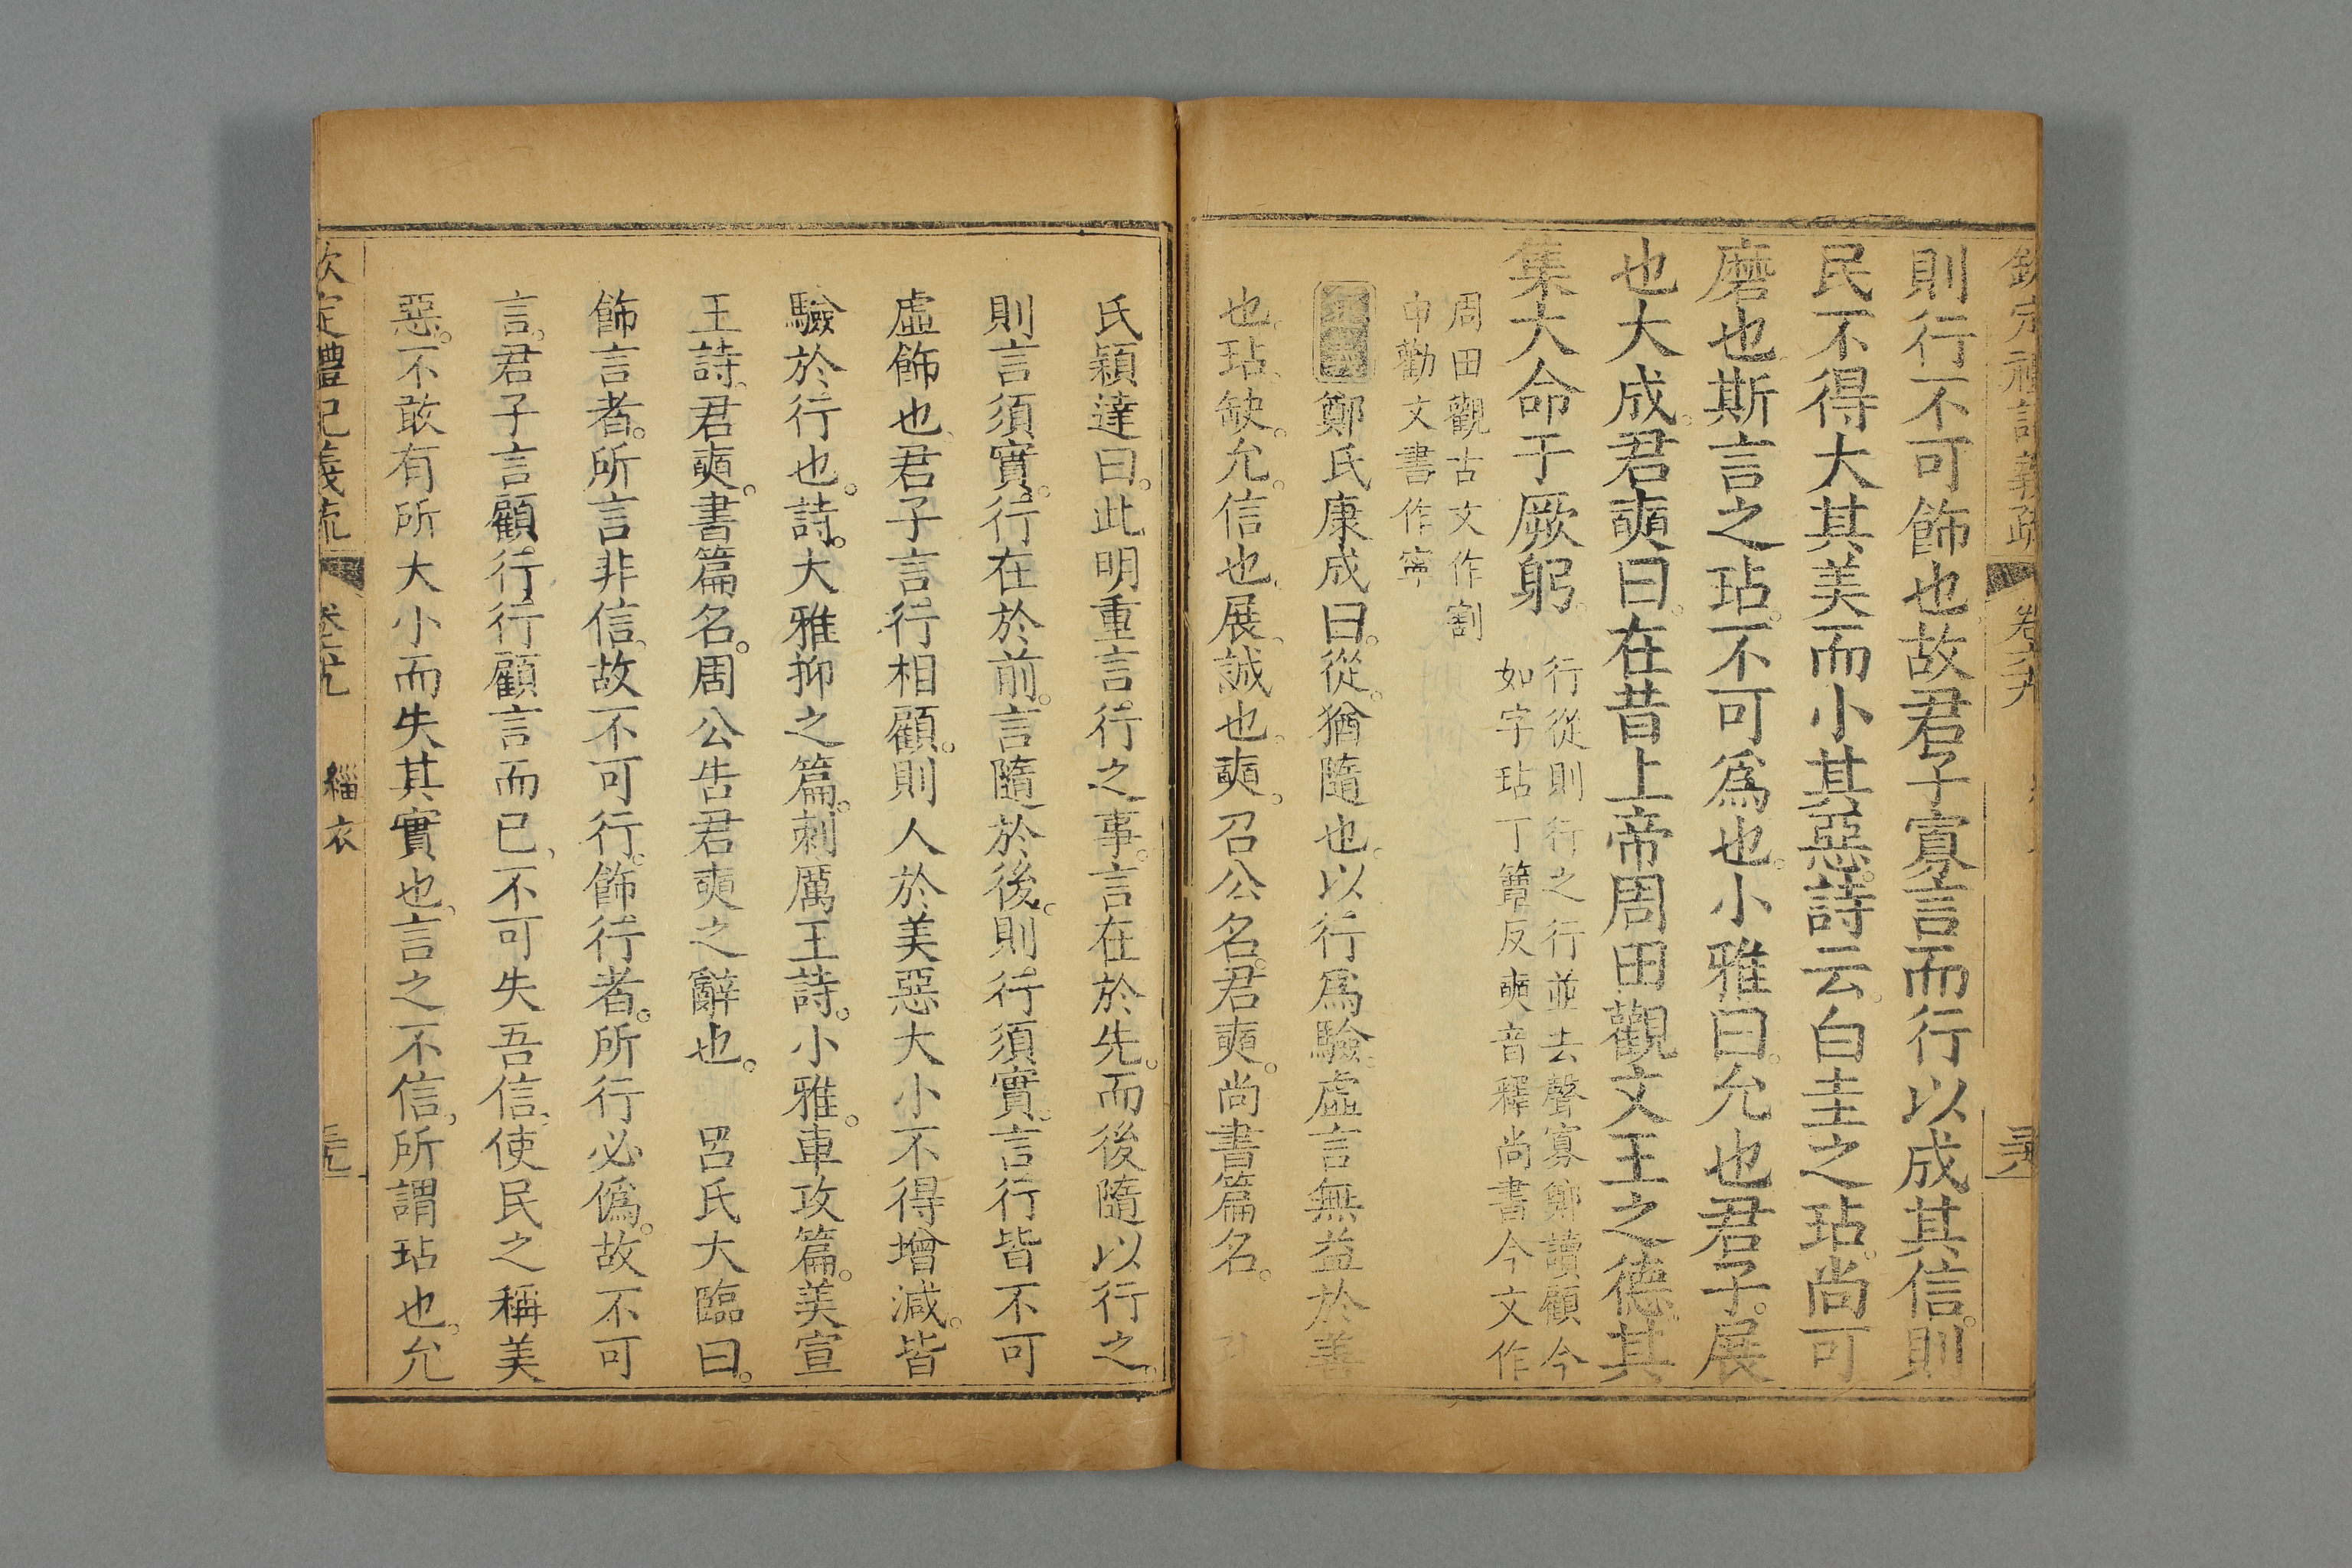 則行不可飾也故君子寡言而行以成其信。則
民不得大其美而小其惡。詩云。白圭之玷。尚可
磨也斯言之玷。不可爲也。小雅曰。允也君子。展
也大成。君奭曰。在昔上帝周田觀文王之德。其
集大命于厥躬。
行從則行之行並去聲寡鄭讀顧今
如字玷丁簟反奭音釋尚書今文作
周田觀古文作割
申勸文書作寧
鄭氏康成曰。從。猶隨也。以行爲驗。虛言無益於善
也。玷。缺。允。信也。展。誠也。奭。召公名。君奭。尚書篇名。
氏穎達曰。此明重言行之事。言在於先。而後隨以行之。
則言須實。行在於前。言隨於後。則行須實。言行皆不可
虛飾也。君子言行相顧。則人於美惡大小不得增減。皆
驗於行也。詩。大雅抑之篇。刺厲王詩。小雅。車攻篇。美宣
王詩。君奭。書篇名。周公告君奭之辭也。 呂氏大臨曰。
飾言者。所言非信、故不可行。飾行者。所行必僞。故不可
言。君子言顧行行顧言而已、不可失吾信、使民之稱美
惡。不敢有所大小而失其實也、言之不信、所謂玷也、允
欽定禮記義疏
緇衣